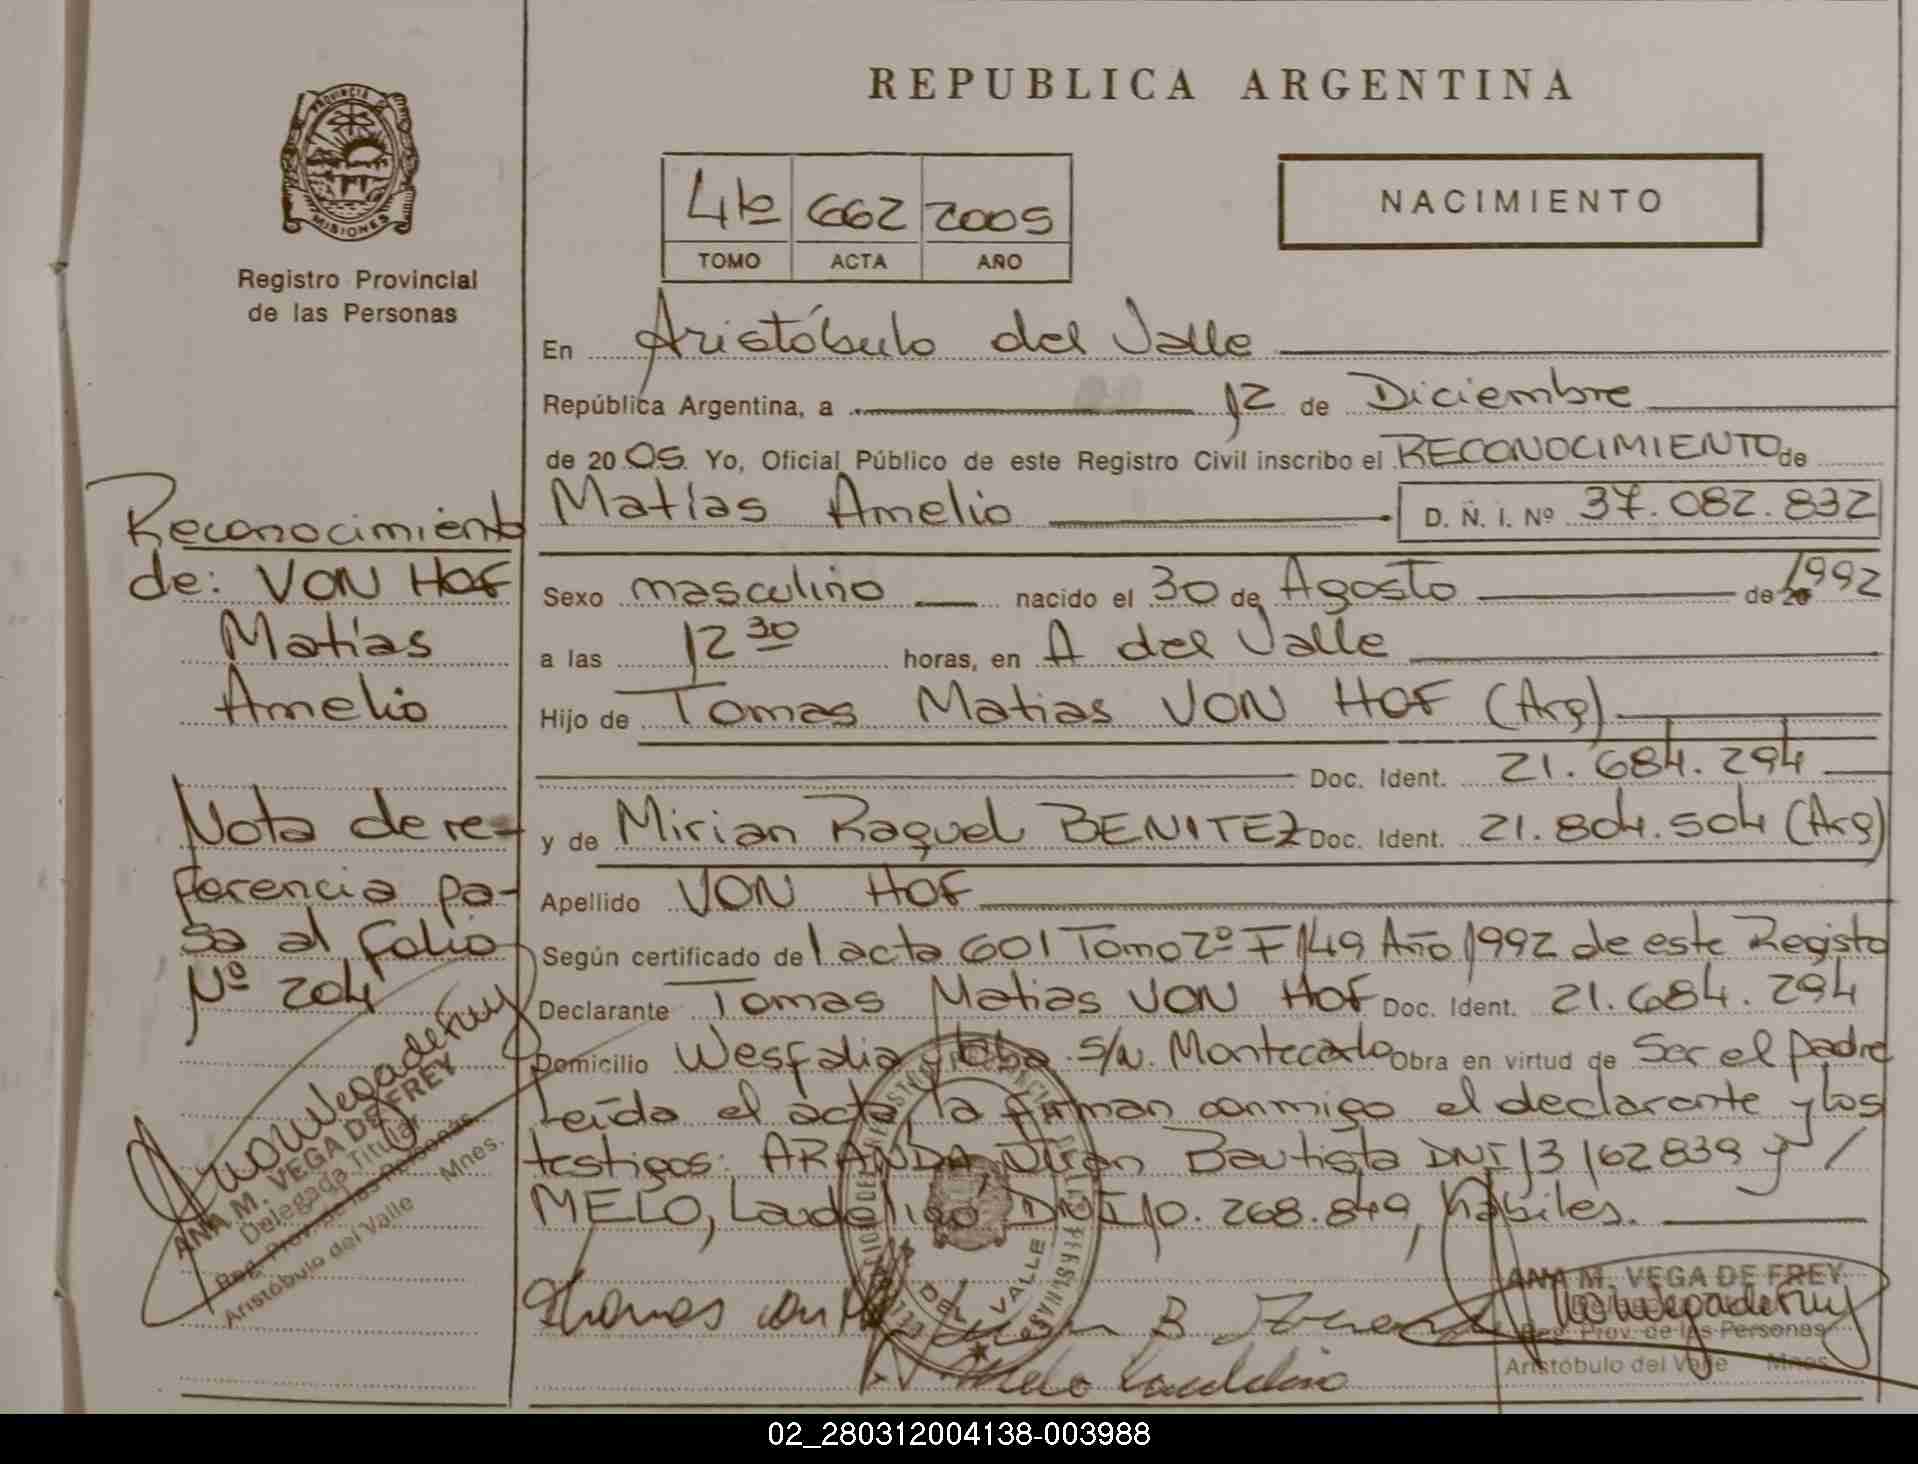 REPUBLICA ARGENTINA
PROVINCIA DE
MISIONES
Registro Provincial
de las Personas
4to 662 2005
TOMO ACTA AÑO
NACIMIENTO
En Aristóbulo del Valle
República Argentina, a 12 de Diciembre
de 2005. Yo, Oficial Público de este Registro Civil inscribo el RECONOCIMIENTO de
Matías Amelio D. Ñ. I. Nº 37.082.832
Sexo masculino nacido el 30 de Agosto de 1992
a las 12 30 horas, en A del Valle
Hijo de Tomas Matias VON HOF (Arg)
Doc. Ident. 21.684.294
y de Mirian Raquel BENITEZ Doc. Ident. 21.804.504 (Arg)
Apellido VON HOF
Según certificado de l acta 601 Tomo 2º F 149 Año 1992 de este Registo
Declarante Tomas Matias VON HOF Doc. Ident. 21.684.294
Domicilio Wesfalia y S/N. Montecarlo Obra en virtud de Ser el padre
Leída el acta, la firman conmigo el declarante y los
testigos: ARANDA, Bautista DNI 13 162 839 y /
MELO, Laudelino DNI 10.268.849, hábiles.
Reconocimiento
de: VON HOF
Matías
Amelio
Nota de re-
ferencia pa-
sa al folio
Nº 204
ANA M. VEGA DE FREY
Delegada Titular
Reg. Prov. de las Personas
Aristóbulo del Valle Mnes.
Thomas von
B
Melo Laudelino
DEL VALLE
ANA M. VEGA DE FREY
Reg. Prov. de las Personas
Aristóbulo del Valle Mnes.
02_280312004138-003988